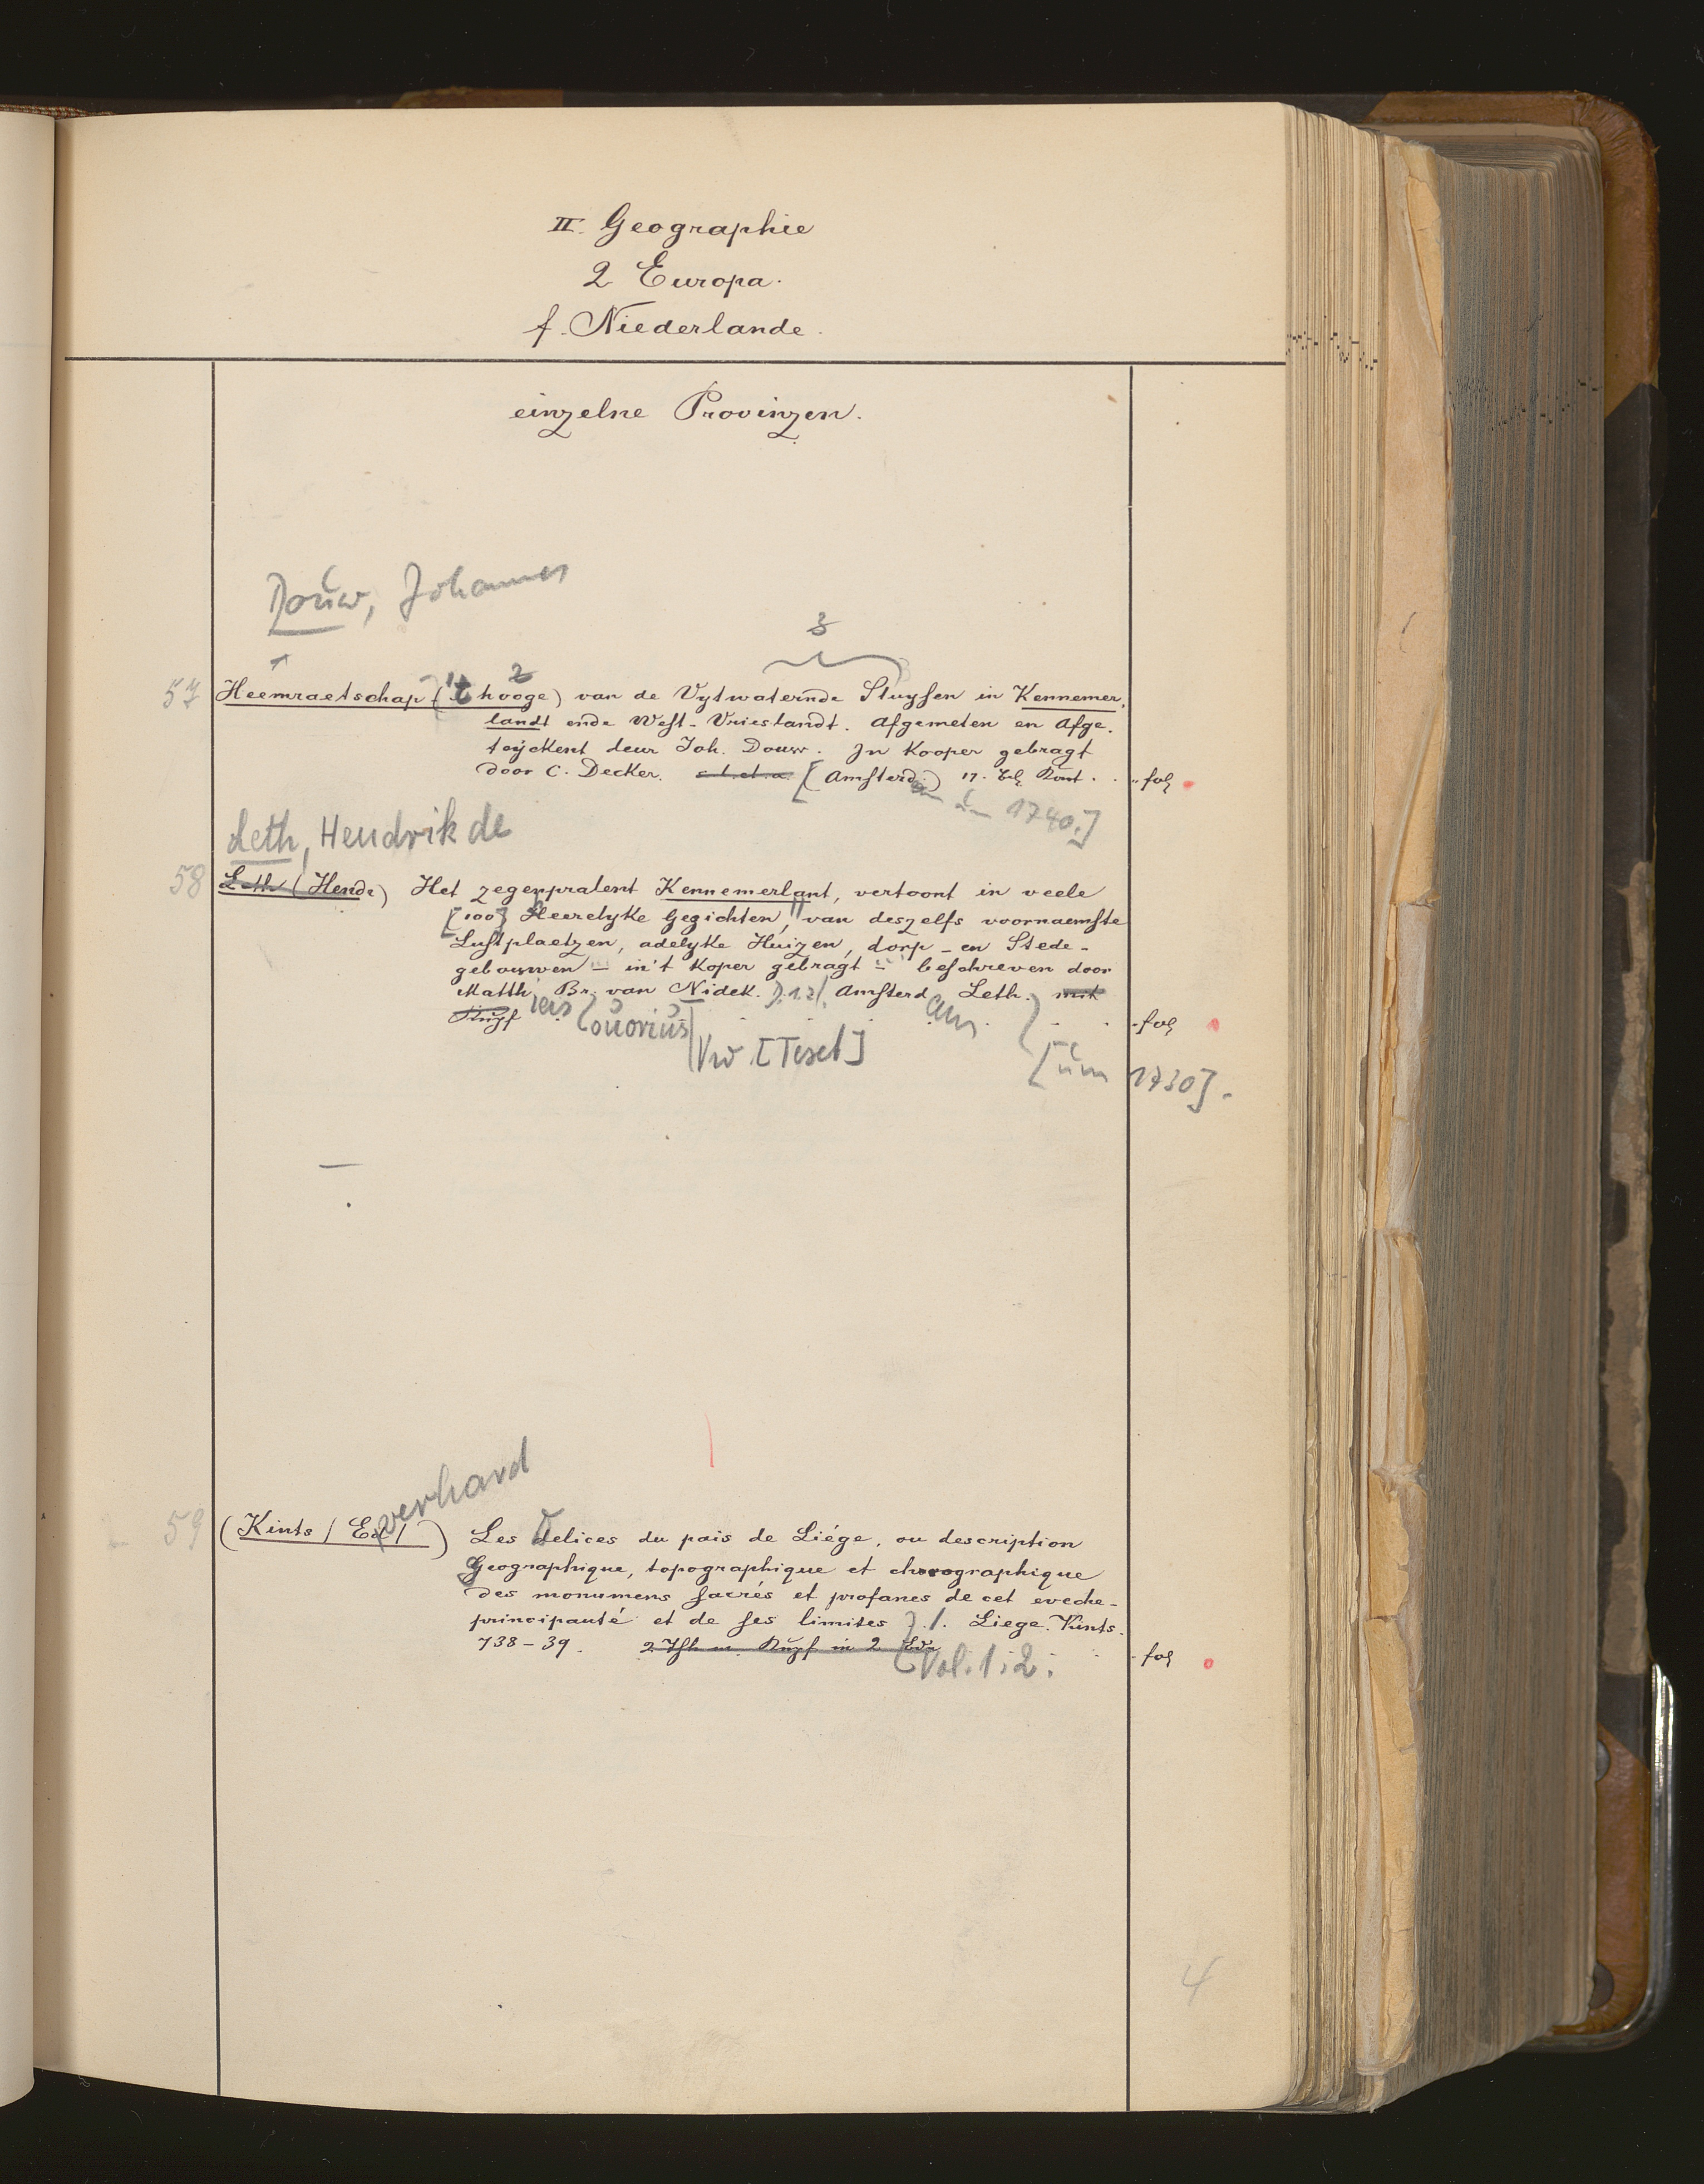 II. Geographie
2 Europa.
f. Niederlande.
einzelne Provinzen.
Douw, Johannes
3
2
57 Heemraetschap ('t hooge) van de Uytwaternde Sluysen in Kennemer,
landt ende West-Vrieslandt. Afgemeten en Afge.
teyckent deur Joh. Douw. In Kooper gebragt
door C. Decker. s. l. et a. [(Amsterd.) 17. fol
um 1740.]
Leth, Hendrik de
58 Leth (Hendr) Het zegenpralent Kennemerlant, vertoont in veele
[100] Heerelyke Gezichten, van deszelfs voornaemste
Lustplaetzen, adelyke Huizen, dorp- en Stede-
gebouwen - in't Koper gebragt - beschreven door
Matth. Br. van Nidek. D. 1. 2. Amsterd. Leth. mit
Kupf fol
ouorius
Vw [Text]
[um 1730].
everhard
59 (Kints / Ev /) Les Delices du pais de Liége, ou description
Geographique, topographique et chorographique
des monumens sacrés et profanes de cet eveche-
principauté et de ses limites . 1. Liege. Kints.
738-39. 2 Th m. Kupf in 2 Bdn fol
Vol. 1. 2.
4